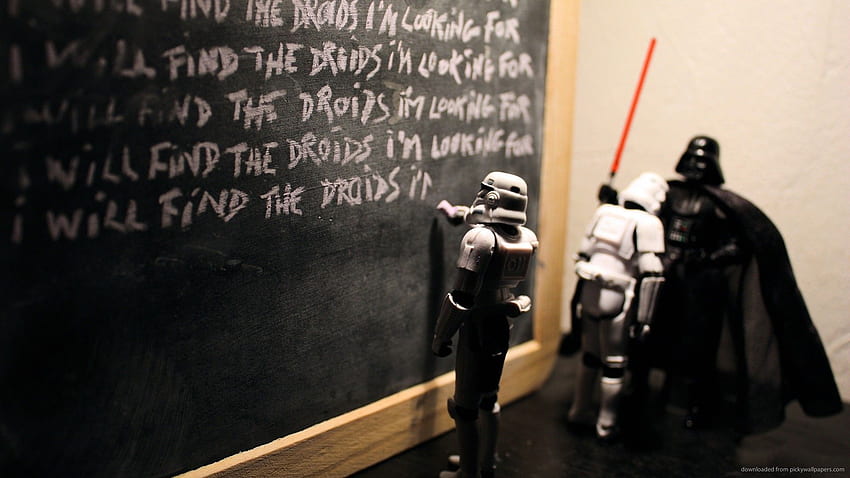 I WILL FIND THE DROIDS I'M LOOKING FOR
I WILL FIND THE DROIDS I'M LOOKING FOR
I WILL FIND THE DROIDS I'M LOOKING FOR
I WILL FIND THE DROIDS I'M LOOKING FOR
I WILL FIND THE DROIDS I'M
downloaded from pickywallpapers.com